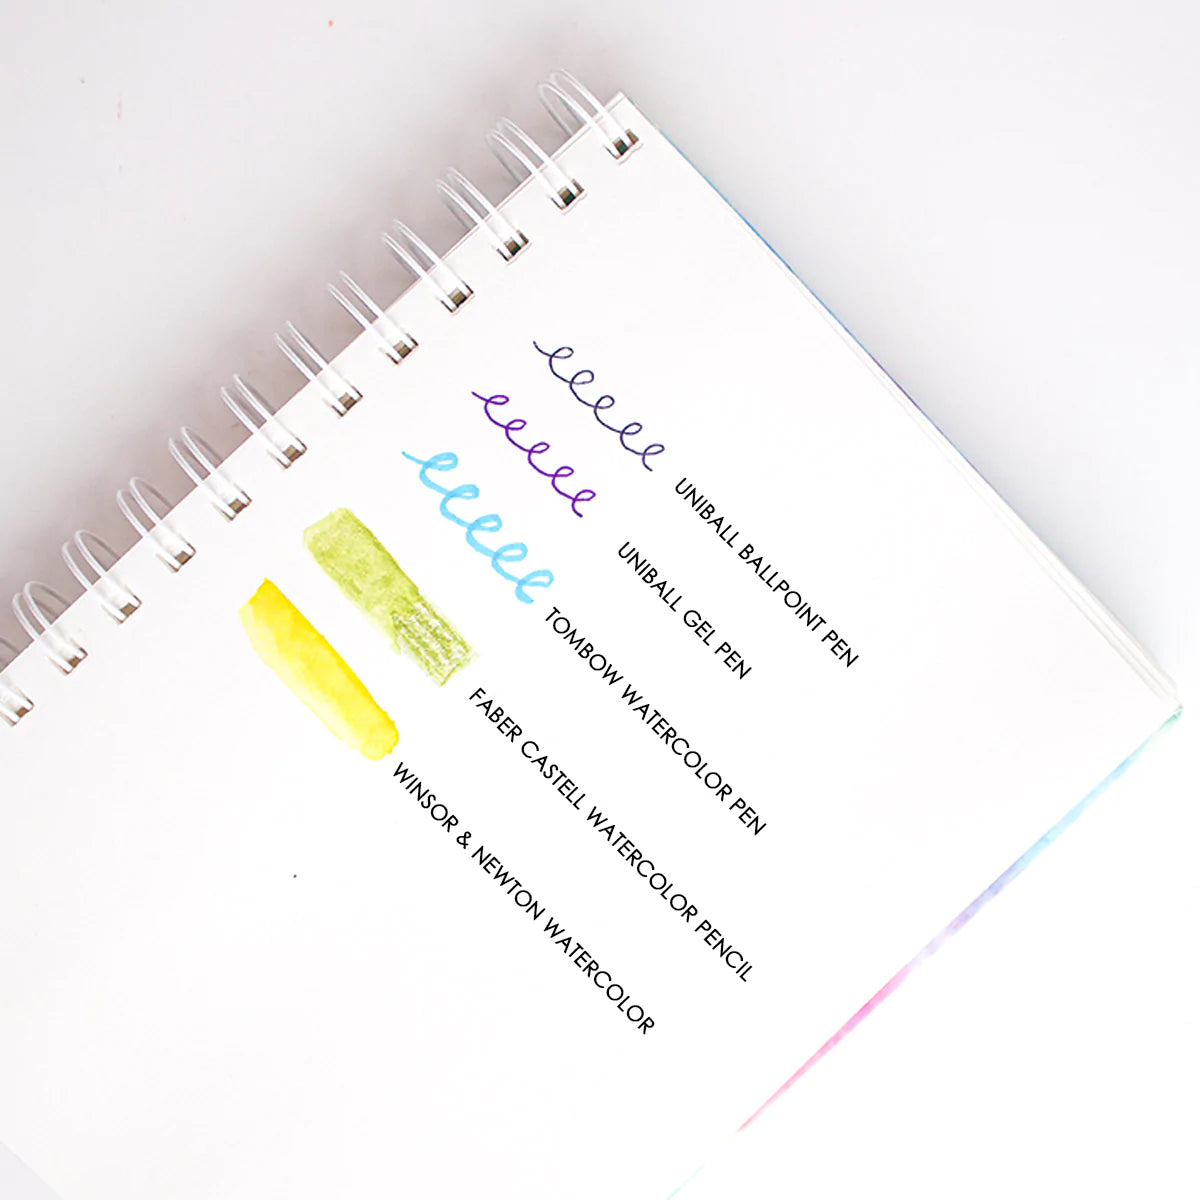 UNIBALL BALLPOINT PEN
UNIBALL GEL PEN
TOMBOW WATERCOLOR PEN
FABER CASTELL WATERCOLOR PENCIL
WINSOR & NEWTON WATERCOLOR